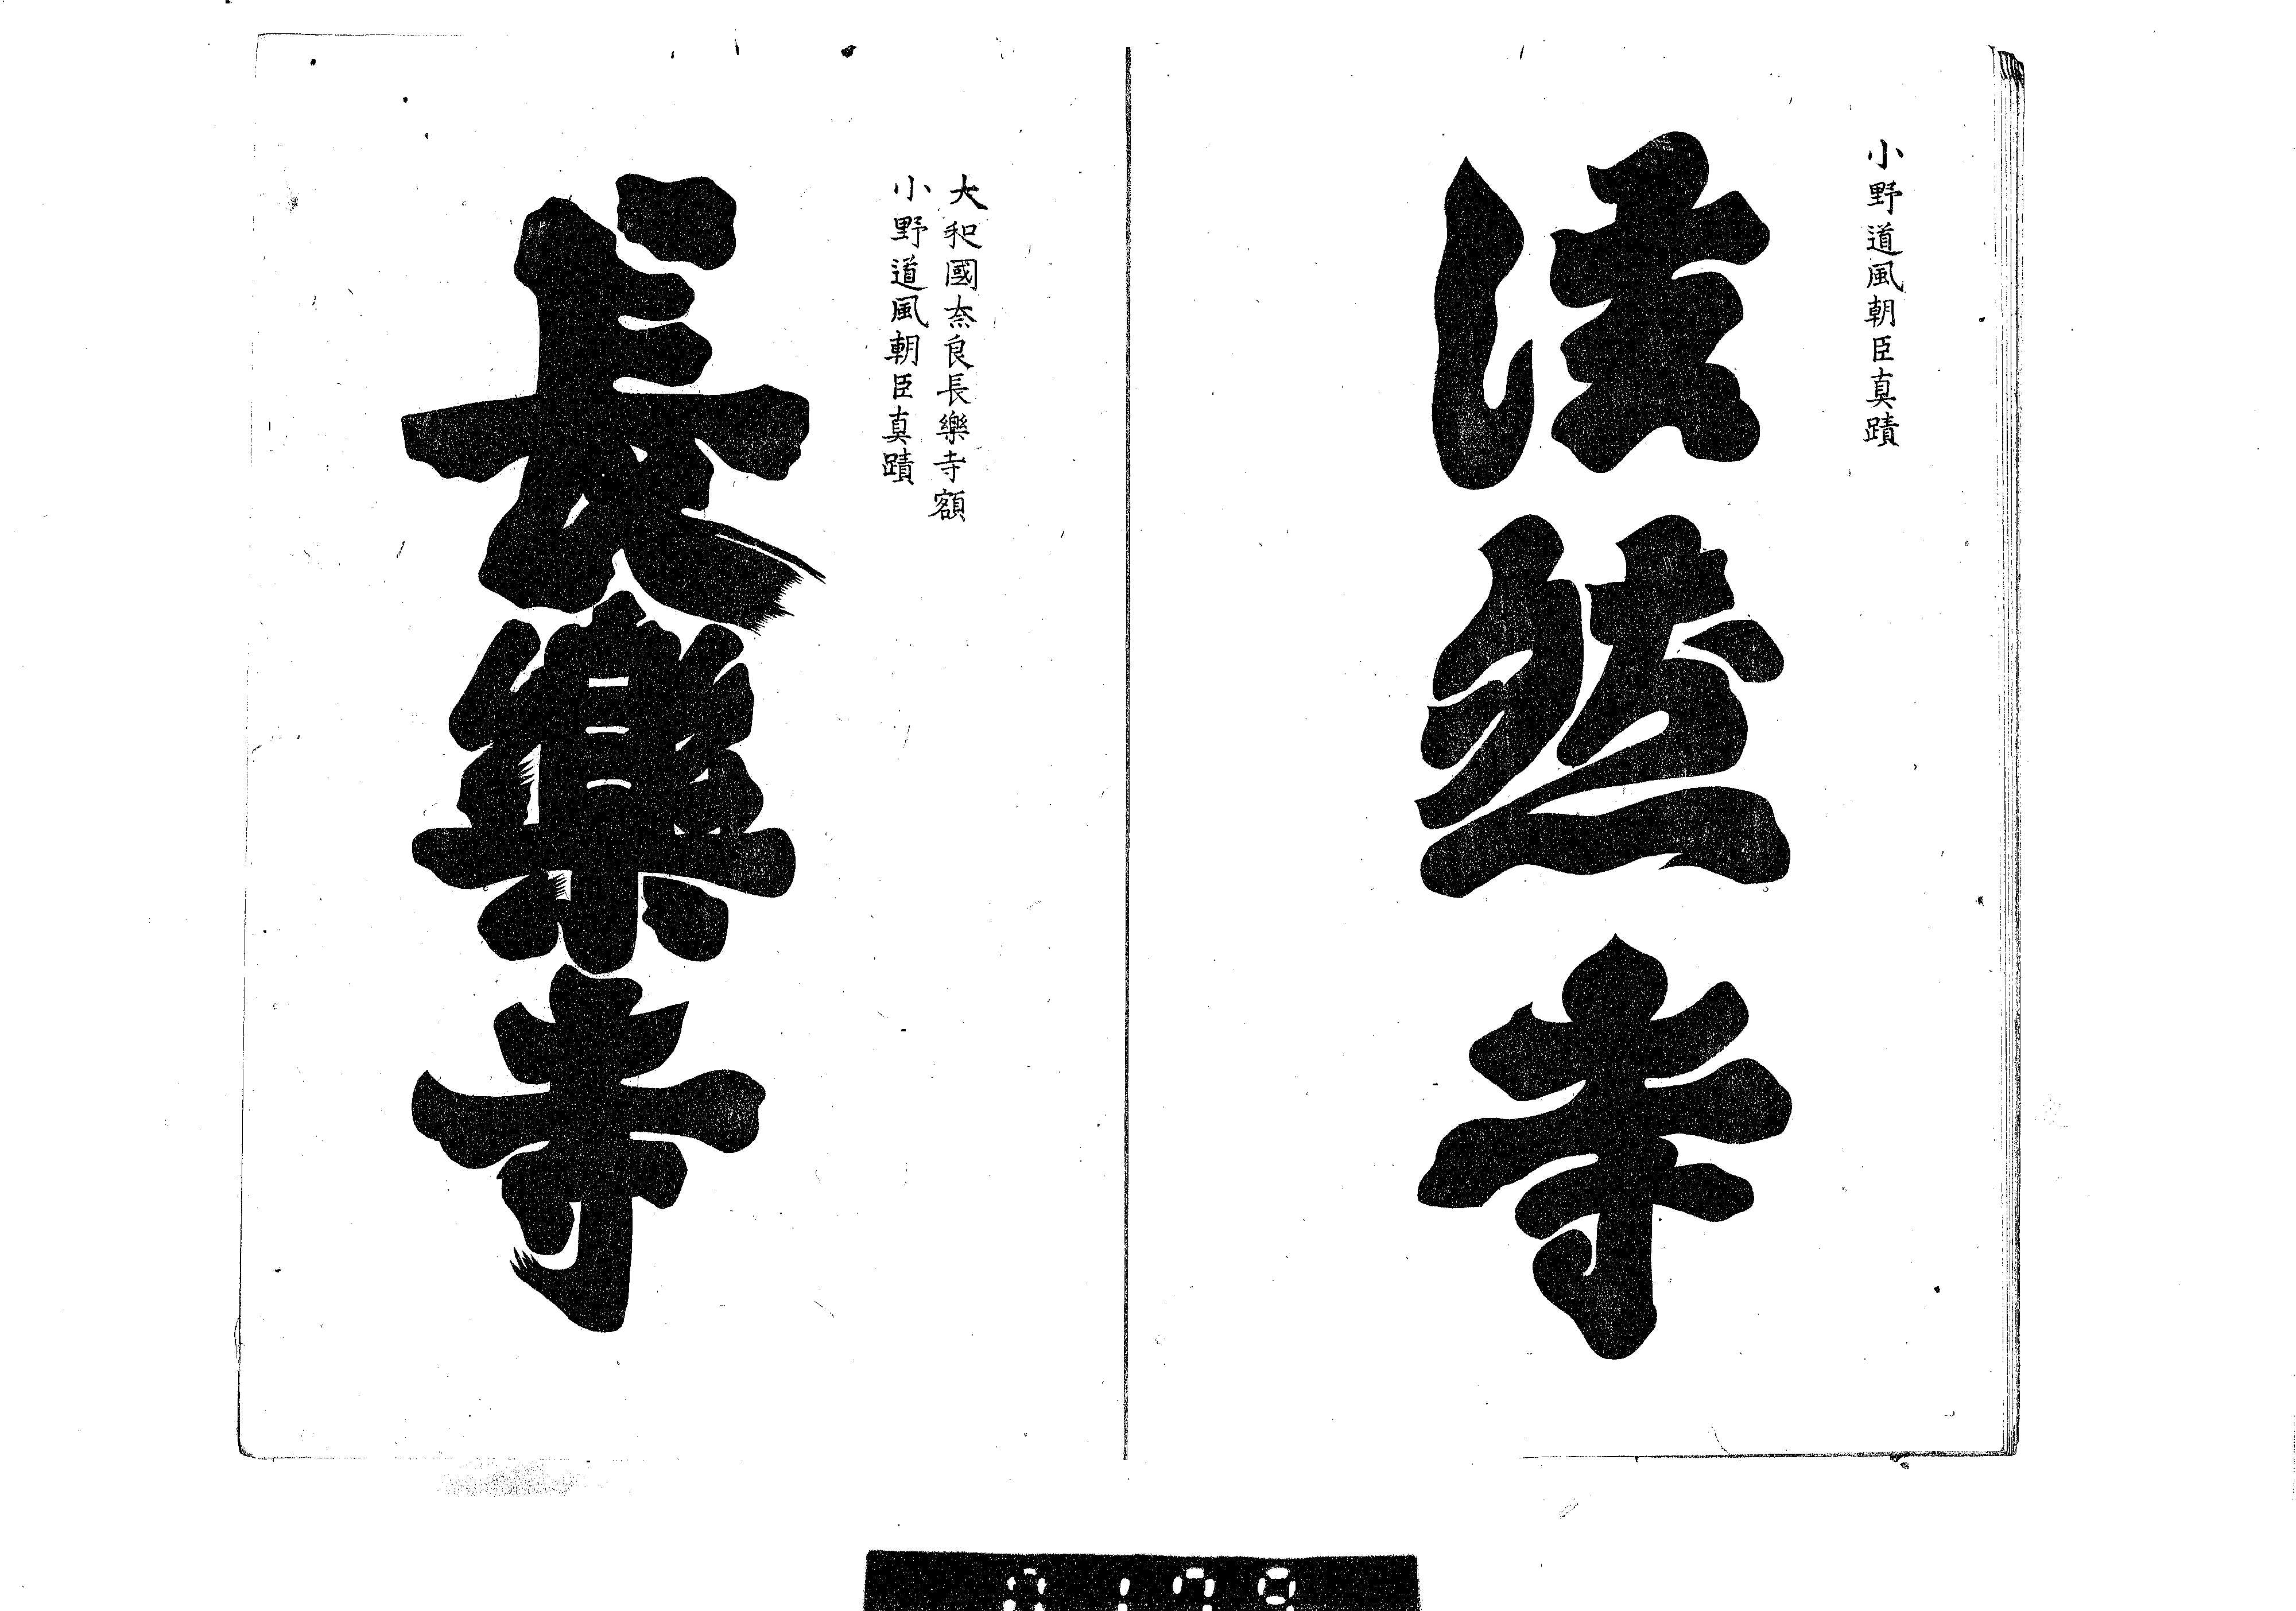 小野道風朝臣真蹟
法然寺
大和國奈良長樂寺額
小野道風朝臣真蹟
長樂寺